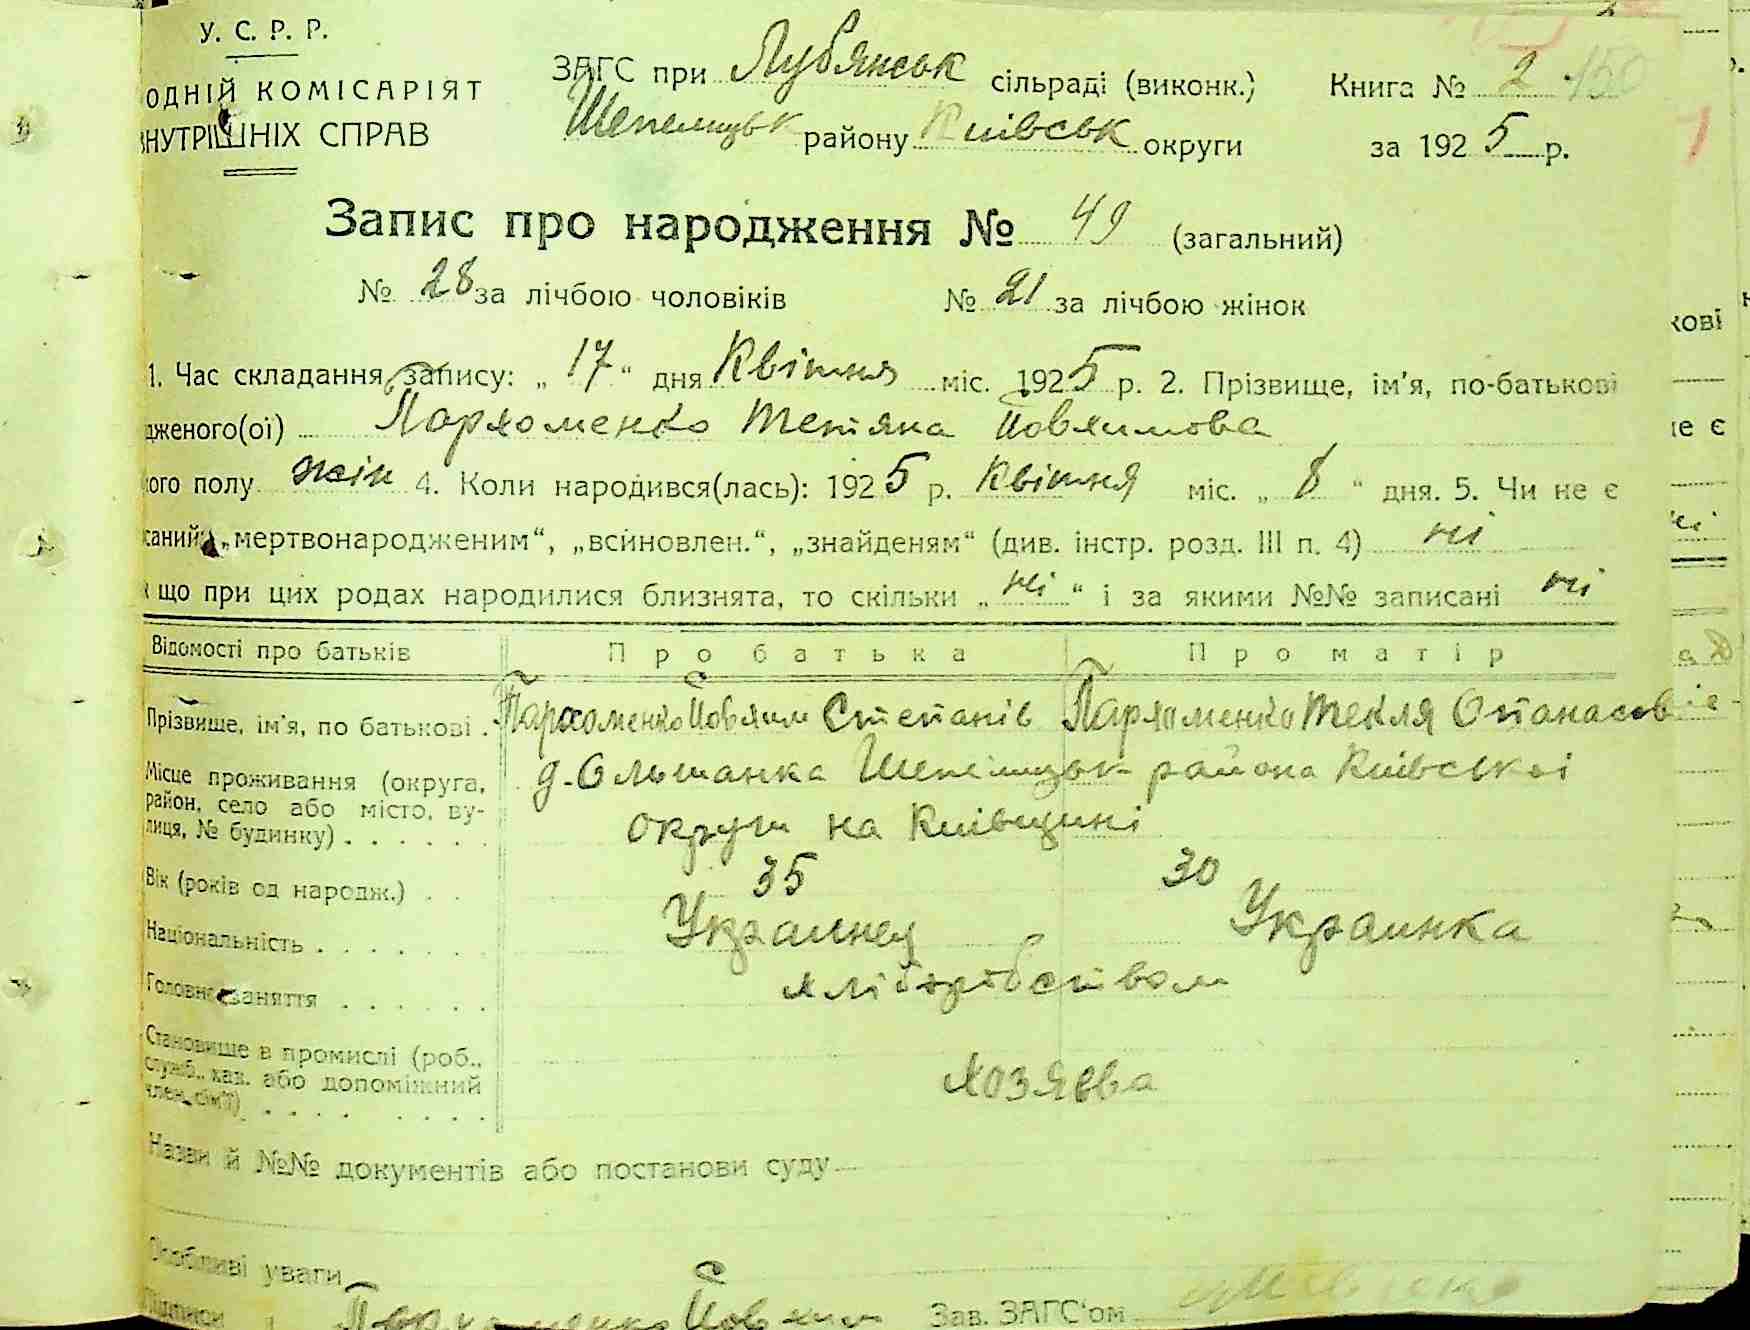 У. С. Р. Р.
ОДНІЙ КОМІСАРІЯТ
ВНУТРІШНІХ СПРАВ
ЗАГС при Лубянськ сільраді (виконк.) Книга № 2 150
Шепелицьк району Київськ округи за 1925 р.
1
Запис про народження № 49 (загальний)
№ 28 за лічбою чоловіків № 21 за лічбою жінок
1. Час складання запису: „ 17 “ дня Квітня міс. 1925 р. 2. Прізвище, ім'я, по-батькові
дженого(ої) Пархоменко Тетяна Йовхимова
ого полу жін 4. Коли народився(лась): 1925 р. Квітня міс. „ 8 “ дня. 5. Чи не є
саний „мертвонародженим“, „всиновлен.“, „знайденям“ (див. інстр. розд. III п. 4) ні
що при цих родах народилися близнята, то скільки „ ні “ і за якими №№ записані ні
Відомості про батьків Про батька Про матір
Прізвище, ім'я, по батькові . Пархоменко Йовхим Степанів Пархоменко Текля Опанасов
Місце проживання (округа, район, село або місто, вулиця, № будинку) . . . . . . д. Ольшанка Шепелицьк района Київської
округи на Київщині
Вік (років од народж.) . . 35 30
Національність . . . . . . . Украинец Украинка
Головне заняття . . . . . . хліборобством
Становище в промислі (роб.,
служб., хаз. або допоміжний
член сім'ї) . . . . . . . . Хозяєва
Назви й №№ документів або постанови суду
Особливі уваги
Підписи Пархоменко Йовхим Зав. ЗАГС'ом